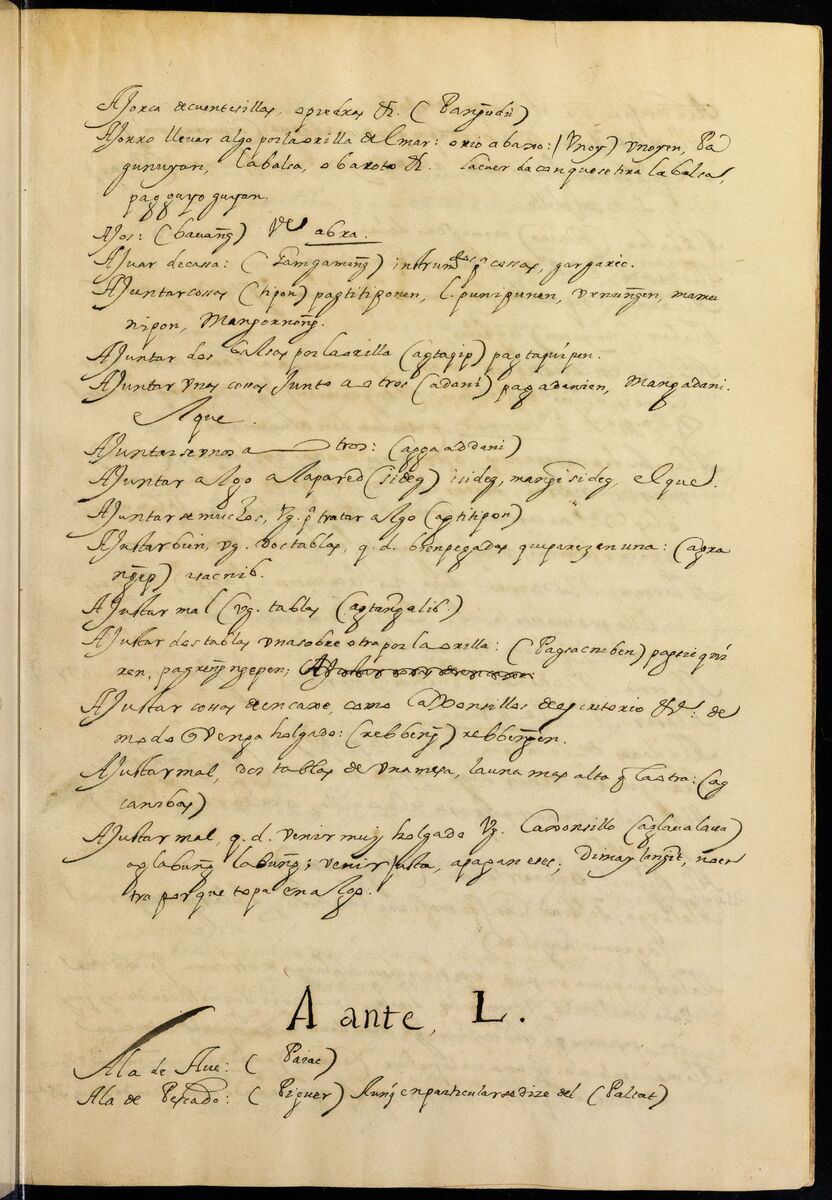 Ajorca de cuentesillas, o piedras &c. ( Pangudù)
Ajorro llevar algo por la orilla del mar: o rio abaxo: (Vnoy) vnoyen, Pa
gunuyan, la balsa, o baroto &c. la cuerda con que se tira la balsa,
pagguyoguyan.
Ajos: (bauang̃) Vide abra.
Ajuar de casa: ( ) cossas, gargaréc.
Ajuntar cossas (tipon) pagtitiponen, l. punipunen, vrnung̃en, mamu
nipon, Mangornong̃.
Ajuntar dos balsas por la orilla (agtaqip) pagtaquipen.
Ajuntar vnas cossas Junto a otras (adani) pagadanien, Mangadani.
el que.
Ajuntarse vnos a otros: (agga addani)
Ajuntar algo a la pared (sideg) isideg, mang̃isideg, el que.
Ajuntarse muchos, Vg. pa tratar algo (agtitipon)
Ajustar bien, vg. dos tablas, q. d. bien pegadas que parezen una: (agra
ng̃ep) sacnib.
Ajustar mal (vg. tablas (agtang̃alib.)
Ajustar dos tablas vna sobre otra por la orilla: ( Pagsacniben)
ren, pagreng̃ng̃epen;
Ajustar cossas de encaxe, como Caxonsillos de escritorio &c: de
modo q venga holgado: (rebbeng̃) rebbeng̃en.
Ajustar mal, dos tablas de vna mesa, la una mas alta q la otra: (ag
canibas)
Ajustar mal, q. d. venir muy holgado Vg. Caxonsillo (aglaualaua)
aglabung̃ labung̃; venir justa, apagan eses; Dimaylang̃it, no en
tra porque topa en algo.
A ante, L.
Ala de Aue: ( Paiac)
Ala de Pescado: ( Piguer) Aunq en particular se dize del (Paltat)